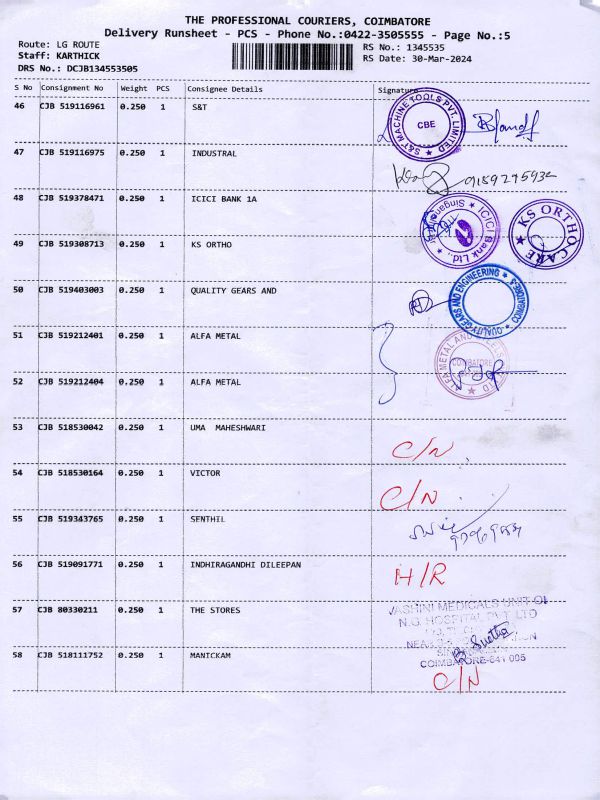 THE PROFESSIONAL COURIERS, COIMBATORE
Delivery Runsheet - PCS - Phone No.:0422-3505555 - Page No.:5
Route: LG ROUTE RS No.: 1345535
Staff: KARTHICK RS Date: 30-Mar-2024
DRS No.: DCJB134553505
S No Consignment No Weight PCS Consignee Details Signature
46 CJB 519116961 0.250 1 S&T
S&T MACHINE TOOLS PVT. LIMITED CBE
47 CJB 519116975 0.250 1 INDUSTRAL
48 CJB 519378471 0.250 1 ICICI BANK 1A
ICICI Bank Ltd.,
KS ORTHO CARE
49 CJB 519308713 0.250 1 KS ORTHO
50 CJB 519403003 0.250 1 QUALITY GEARS AND
QUALITY GEARS AND ENGINEERING COIMBATORE
51 CJB 519212401 0.250 1 ALFA METAL
COIMBATORE
52 CJB 519212404 0.250 1 ALFA METAL
53 CJB 518530042 0.250 1 UMA MAHESHWARI
C/N
54 CJB 518530164 0.250 1 VICTOR
C/N
55 CJB 519343765 0.250 1 SENTHIL
56 CJB 519091771 0.250 1 INDHIRAGANDHI DILEEPAN
H/R
57 CJB 80330211 0.250 1 THE STORES
MEDICALS UNIT OF
N.G. HOSPITAL PVT. LTD
COIMBATORE-641 005
58 CJB 518111752 0.250 1 MANICKAM
C/N